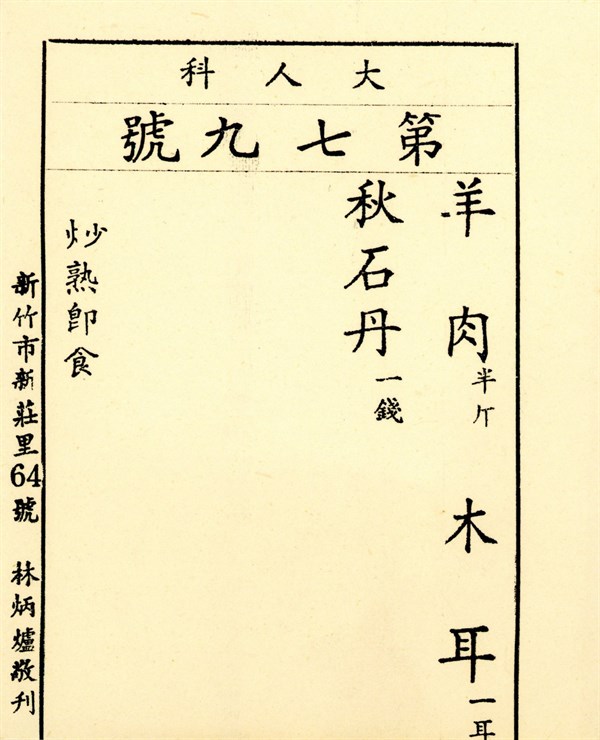 大人科
第七九號
羊肉半斤 木耳一耳
秋石丹一錢
炒熟即食
新竹市新莊里64號 林炳爐敬刊